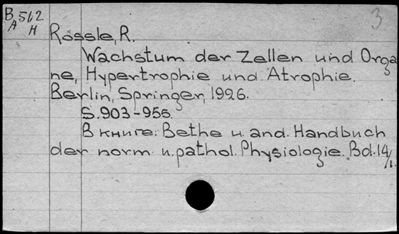 B 562
A H
3
Rössle, R.
Wachstum der Zellen und Orga
ne, Hypertrophie und Atrophie.
Berlin, Springer, 1926.
S. 903-956
В книге: Bethe u. and. Handbuch
der norm. u. pathol. Physiologie. Bd. 14/1.